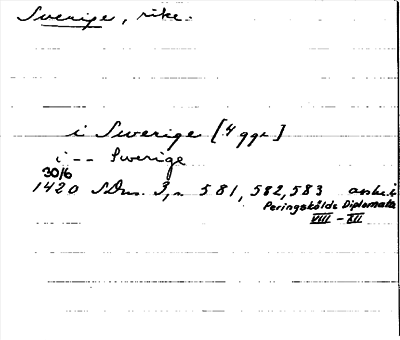 Sverige, rike.
i Swerige [4 ggr]
i -- Swerige
30/6
1420 SDns. 3, s 581, 582, 583 avskr. i
Peringskölds Diplomata
VIII - XII